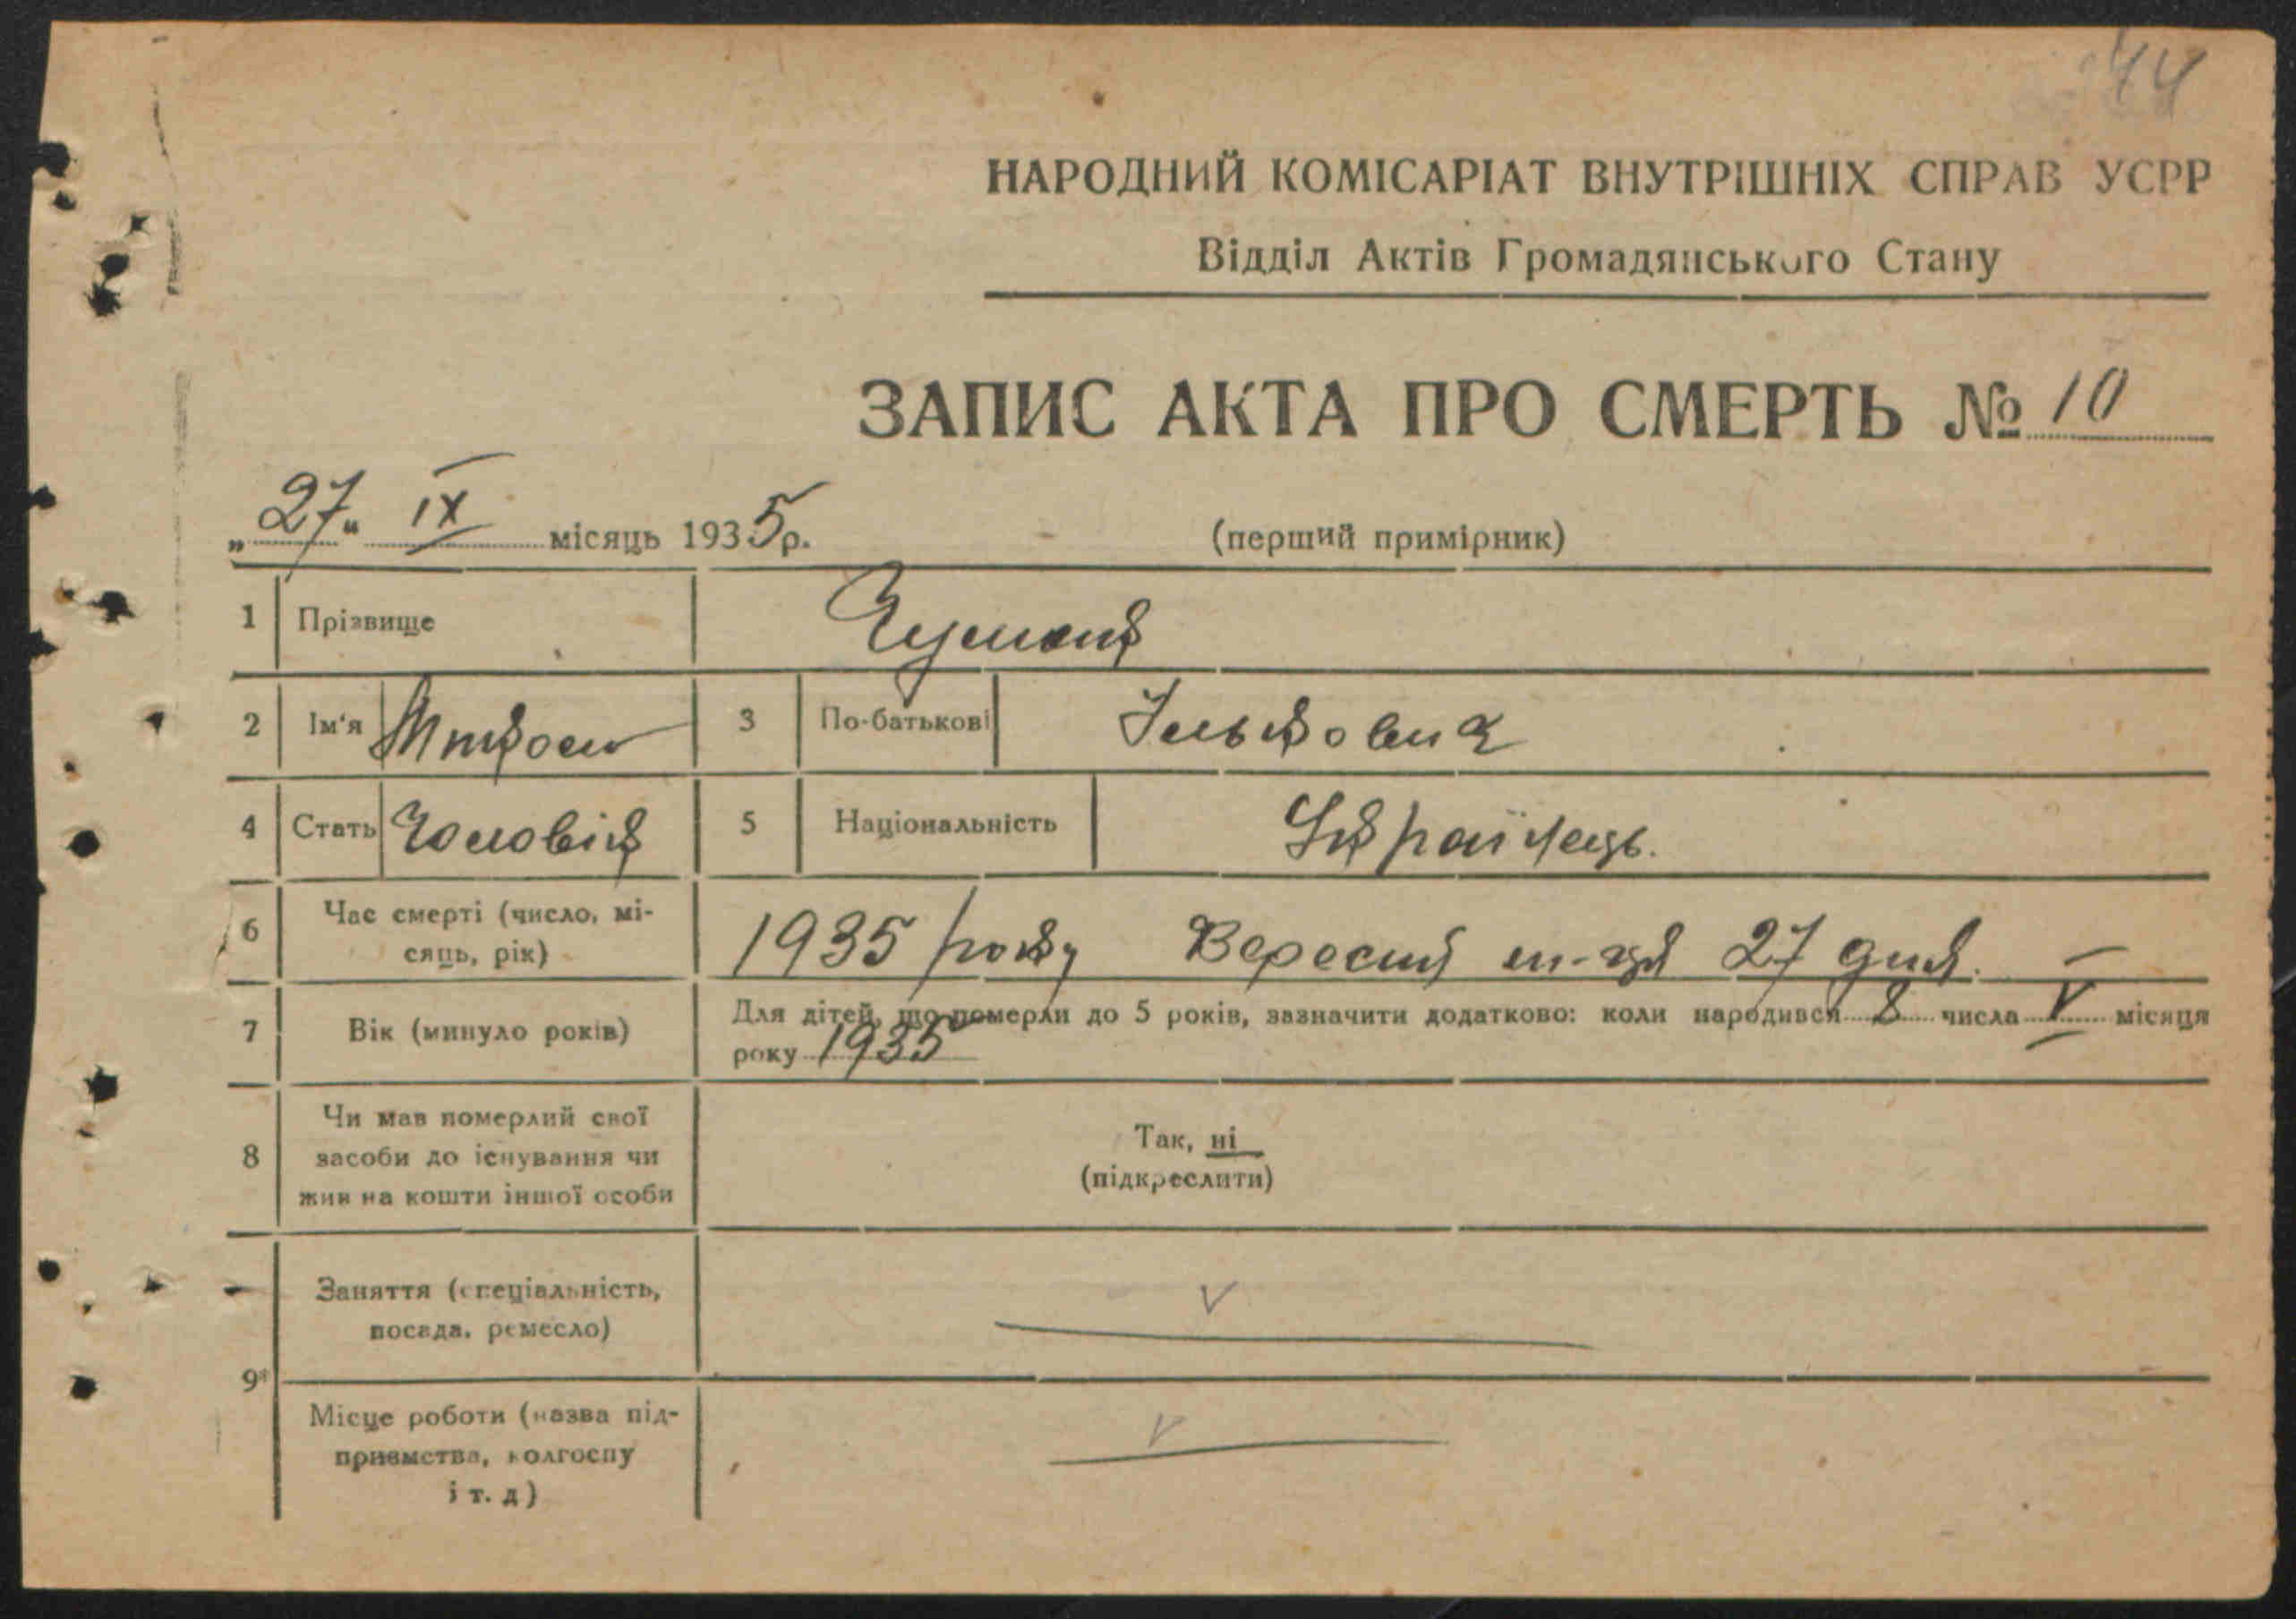 44
НАРОДНИЙ КОМІСАРІАТ ВНУТРІШНІХ СПРАВ УСРР
Відділ Актів Громадянського Стану
ЗАПИС АКТА ПРО СМЕРТЬ № 10
„27“ IX місяць 1935 р.
(перший примірник)
1 Прізвище
2 Ім'я 3 По-батькові Ількович
4 Стать Чоловік 5 Національність Українець.
6 Час смерті (число, мі-
сяць, рік)
1935 року Вересня м-ця 27 дня.
7 Вік (минуло років)
Для дітей, що померли до 5 років, зазначити додатково: коли народився 8 числа V місяця
року 1935
8 Чи мав померлий свої
засоби до існування чи
жив на кошти іншої особи
Так, ні
(підкреслити)
9* Заняття (спеціальність,
посада, ремесло)
V
Місце роботи (назва під-
приємства, колгоспу
і т. д)
V